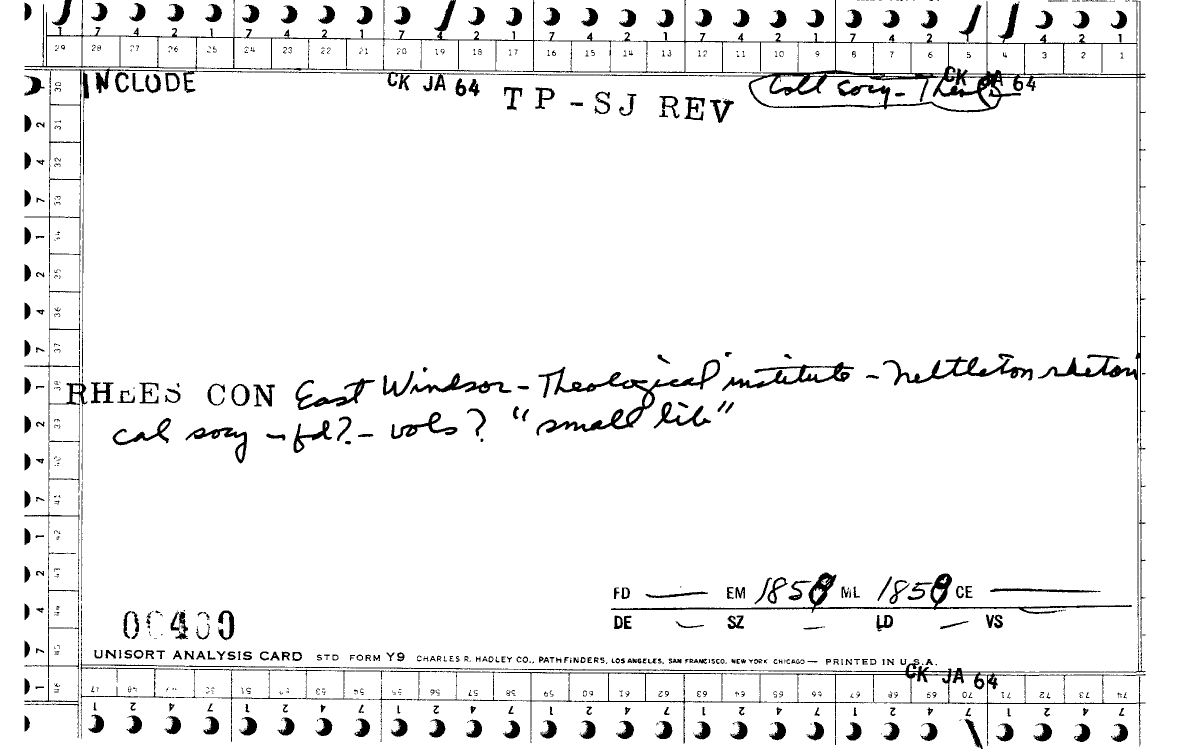 1 7 4 2 1 7 4 2 1 7 4 2 1 7 4 2 1 7 4 2 1 7 4 2 1 4 2 1
29 28 27 26 25 24 23 22 21 20 19 18 17 16 15 14 13 12 11 10 9 8 7 6 5 4 3 2 1
INCLUDE CK JA 64 TP-SJ REV Coll socy - Theol CK JA 64
1 30
2 31
4 32
7 33
1 34
2 35
4 36
7 37
1 38
RHEES CON East Windsor - Theological institute - Nettleton rhetori
2 39
cal socy - fd? - vols? "small lib"
4 40
7 41
1 42
2 43
FD — EM 1858 ML 1858 CE —
4 44
DE — SZ — LD — VS
00400
7 45
UNISORT ANALYSIS CARD STD FORM Y9 CHARLES R. HADLEY CO., PATHFINDERS, LOS ANGELES, SAN FRANCISCO, NEW YORK CHICAGO — PRINTED IN U.S.A.
CK JA 64
1 46 47 48 51 52 53 54 55 56 57 58 59 60 61 62 63 64 65 66 67 68 69 70 71 72 73 74
1 2 4 7 1 2 4 7 1 2 4 7 1 2 4 7 1 2 4 7 1 2 4 7 1 2 4 7